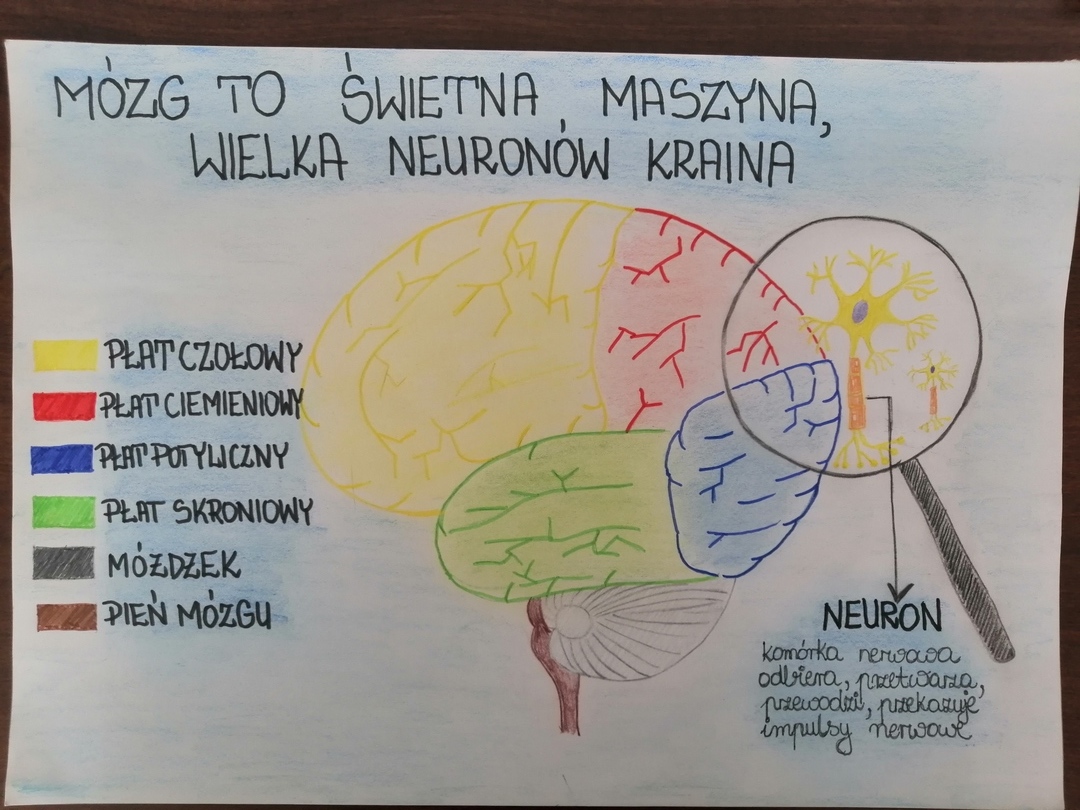 MÓZG TO ŚWIETNA, MASZYNA,
WIELKA NEURONÓW KRAINA
PŁAT CZOŁOWY
PŁAT CIEMIENIOWY
PŁAT POTYLICZNY
PŁAT SKRONIOWY
MÓŻDŻEK
PIEŃ MÓZGU
NEURON
komórka nerwowa
odbiera, przetwarza,
przewodzi, przekazuje
impulsy nerwowe